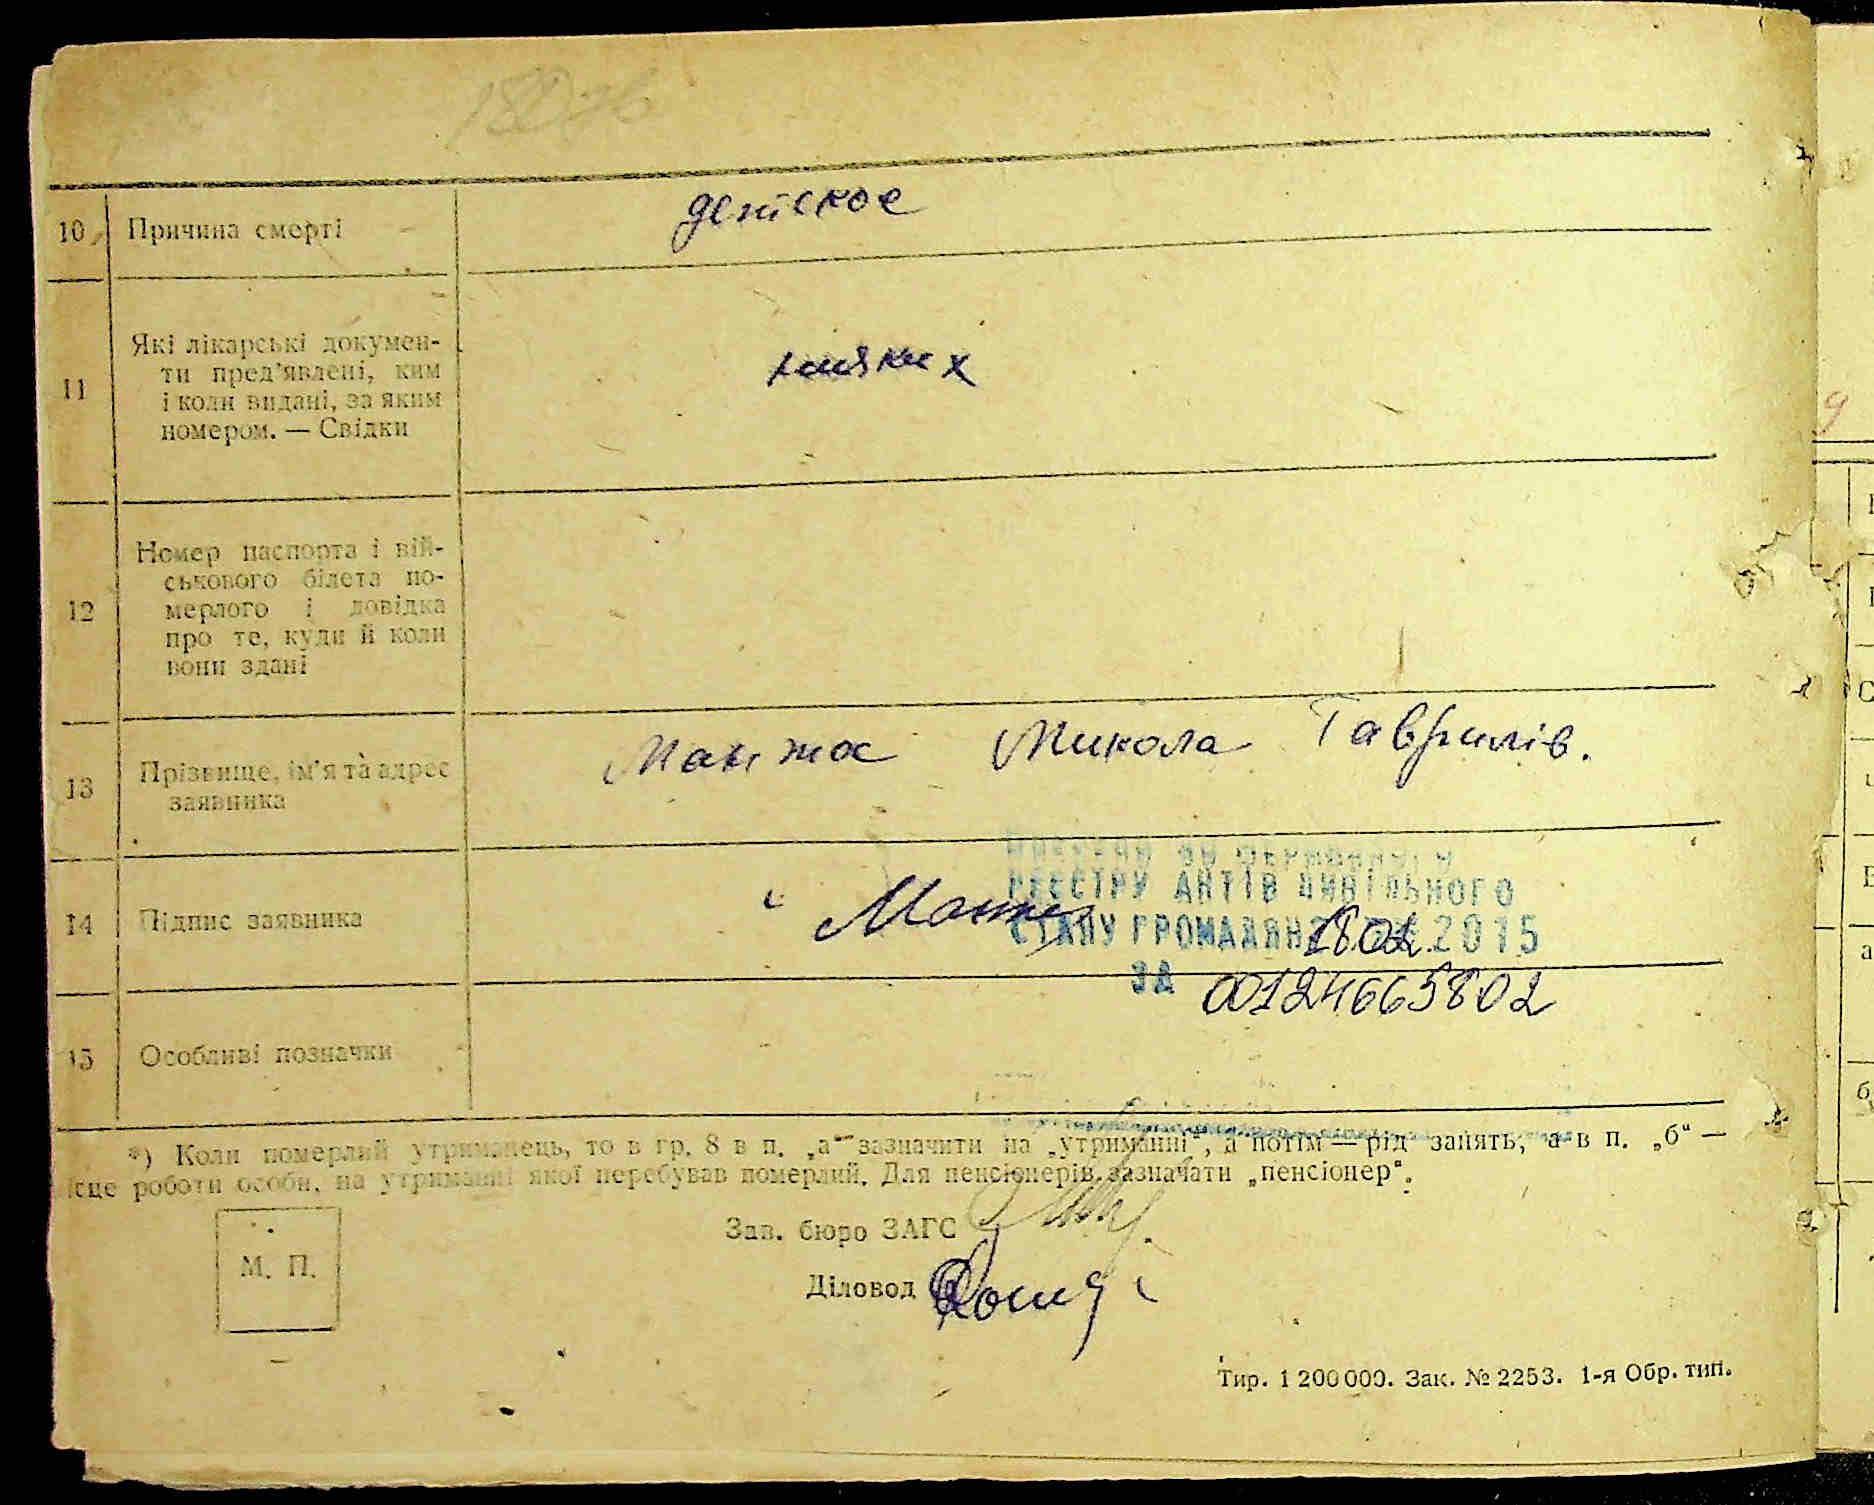 10
Причина смерті
детское
11
Які лікарські докумен-
ти пред'явлені, ким
і коли видані, за яким
номером. — Свідки
ніяких
12
Номер паспорта і вій-
ськового білета по-
мерлого і довідка
про те, куди й коли
вони здані
13
Прізвище, ім'я та адрес
заявника
Манжос Микола Гаврилів.
14
Підпис заявника
РЕЄСТРУ АКТІВ ЦИВІЛЬНОГО
СТАНУ ГРОМАДЯН 18.02.2015
ЗА 00124665802
15
Особливі позначки
*) Коли померлий утриманець, то в гр. 8 в п. „а“ зазначити на „утриманні“, а потім — рід занять, а в п. „б“ —
ісце роботи особи, на утриманні якої перебував померлий. Для пенсіонерів зазначати „пенсіонер“.
М. П.
Зав. бюро ЗАГС
Діловод
Тир. 1 200 000. Зак. № 2253. 1-я Обр. тип.